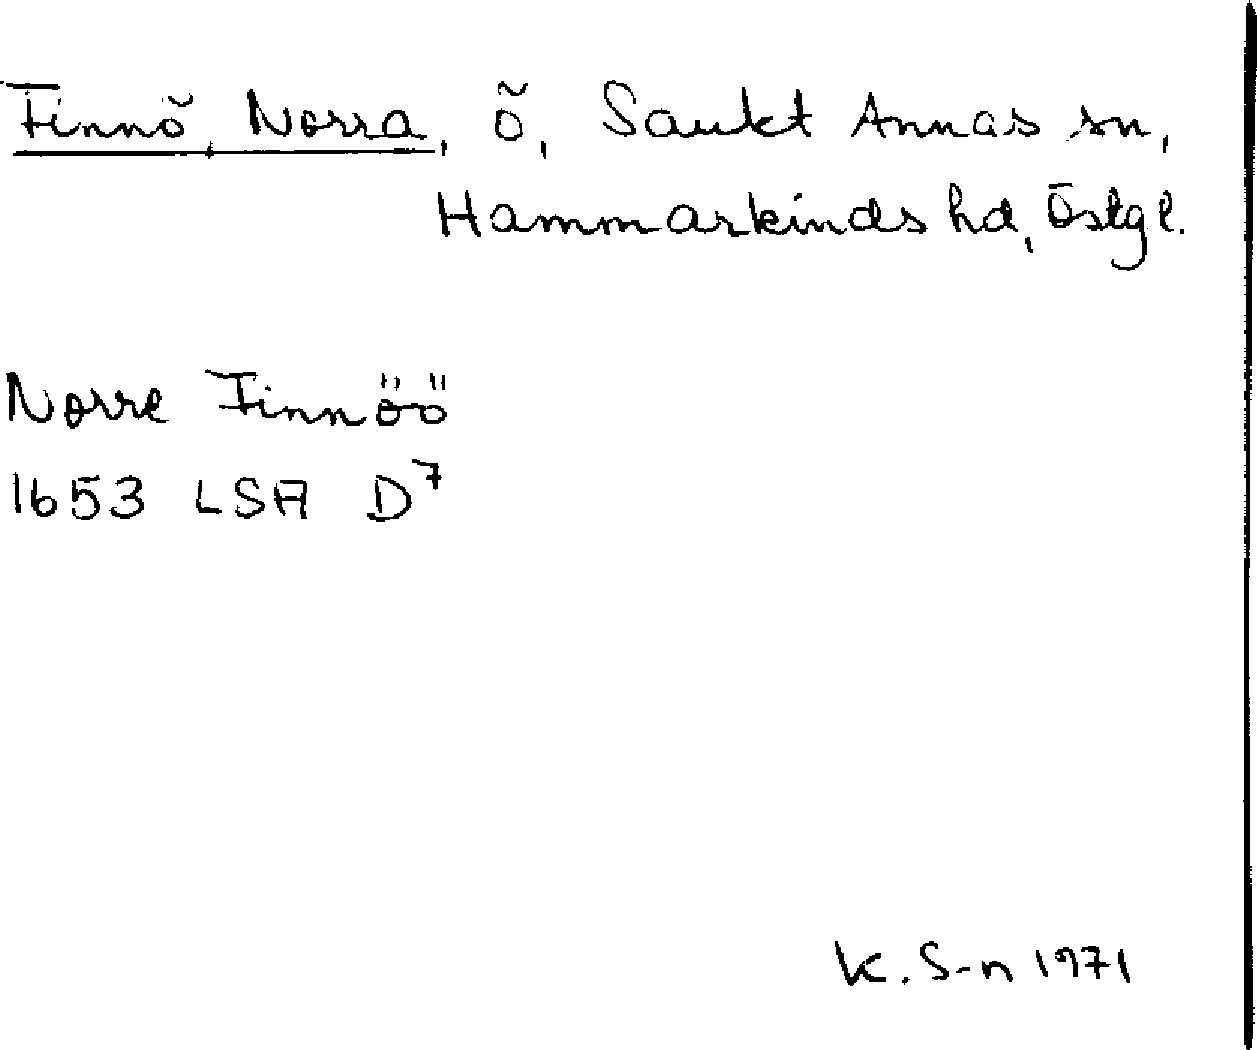 Finnö, Norra, ö, Sankt Annas sn,
Hammarkinds hd, Östgl.
Norre Finnöö
1653 LSA D⁷
K. S-n 1971